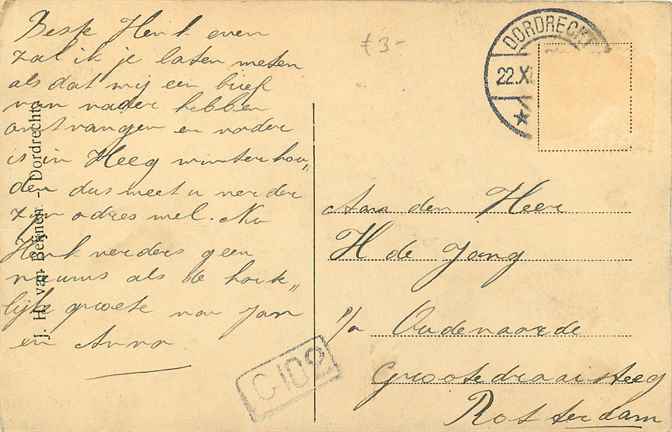 Beste Henk even
zal ik je laten weten
als dat wij een brief
van vader hebben
ontvangen en vader
is in Heeg winterhou„
den dus weet u verder
zijn adres wel. Nu
Henk verders geen
nieuws als de harte„
lijke groete van Jan
en Anna
J. H. van Beijnen. - Dordrecht.
£3-
DORDRECHT
22.XI
C102
Aan den Heer
H de Jong
p/a Oudenaarde
Grootedraaisteeg
Rotterdam